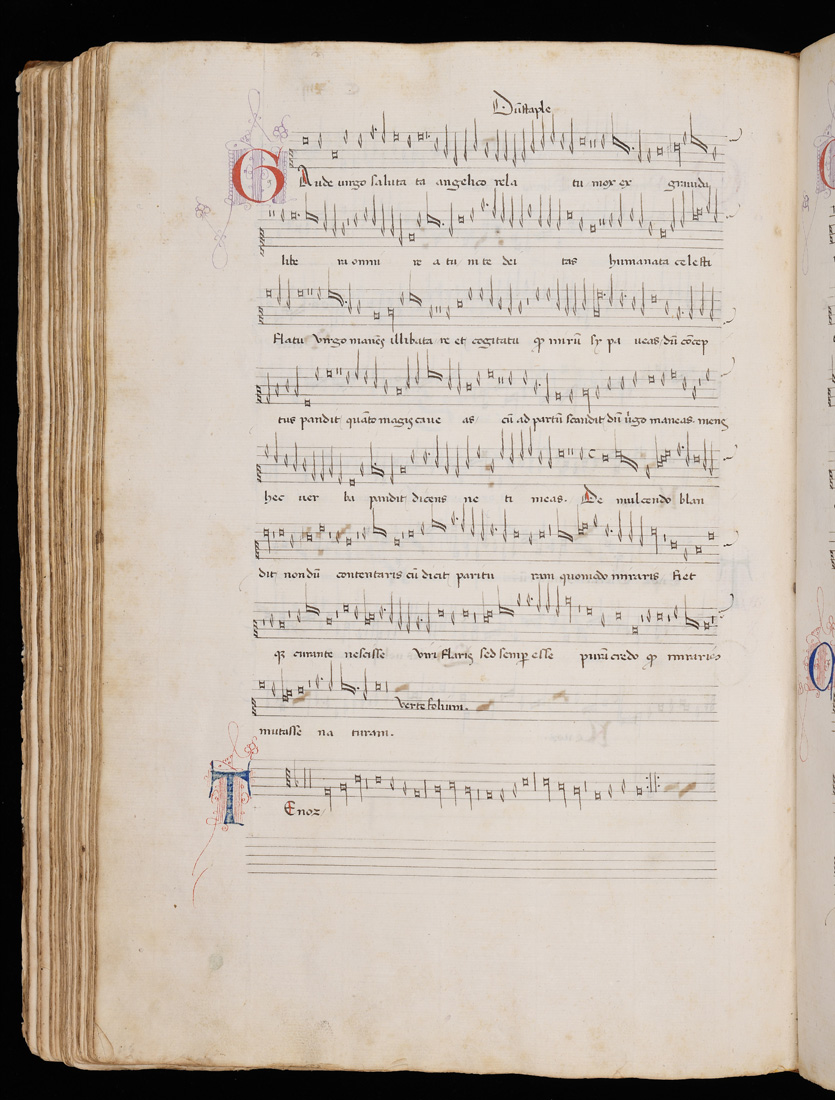 Dūstaple
GAude virgo saluta ta angelico rela tu mox ex gravida
libe ri omni re a tu ni te dei tas humanata celesti
flatu Virgo manēs illibata re et cogitatu qꝫ mirū si pa veas dū cōcep
tus pandit quāto magis cave as cū ad partū scandit dū v̄go maneas. mens
hec ver ba pandit dicens ne ti meas. De mulcendo blan
dit nondū contentaris cū dicit paritu ram quomodo miraris fiet
curante nescisse Viri flaris sed semp esse purū credo qꝫ miraris
mutasse na turam.
Verte folium.
TEnor